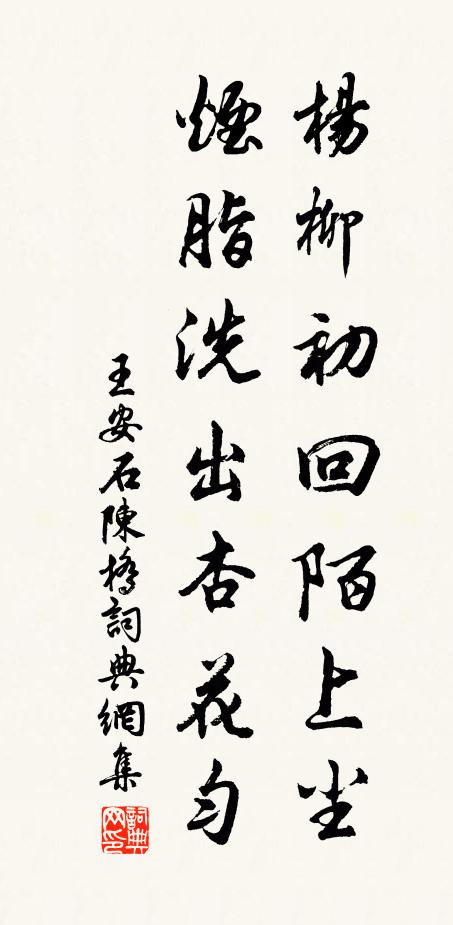 楊柳初回陌上尘
煙脂洗出杏花匀
王安石陳橋詞典網集
詞典网印